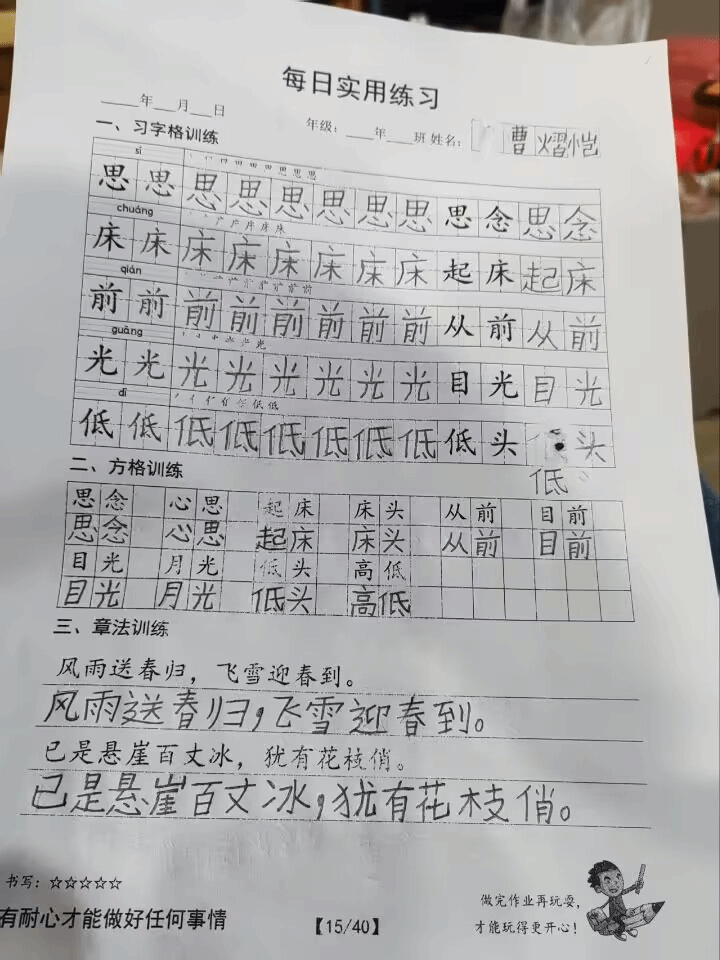 每日实用练习
____年___月___日 年级：____年____班 姓名： 曹熠恺
一、习字格训练
sī
思思思思思思思思思念思念
chuáng
床床床床床床床床起床起床
qián
前前前前前前前前从前从前
guāng
光光光光光光光光目光目光
dī
低低低低低低低低低头低头
低
二、方格训练
思念 心思 起床 床头 从前 目前
思念 心思 起床 床头 从前 目前
目光 月光 低头 高低
目光 月光 低头 高低
三、章法训练
风雨送春归，飞雪迎春到。
风雨送春归，飞雪迎春到。
已是悬崖百丈冰，犹有花枝俏。
已是悬崖百丈冰，犹有花枝俏。
书写：☆☆☆☆☆
有耐心才能做好任何事情
【15/40】
做完作业再玩耍，
才能玩得更开心！